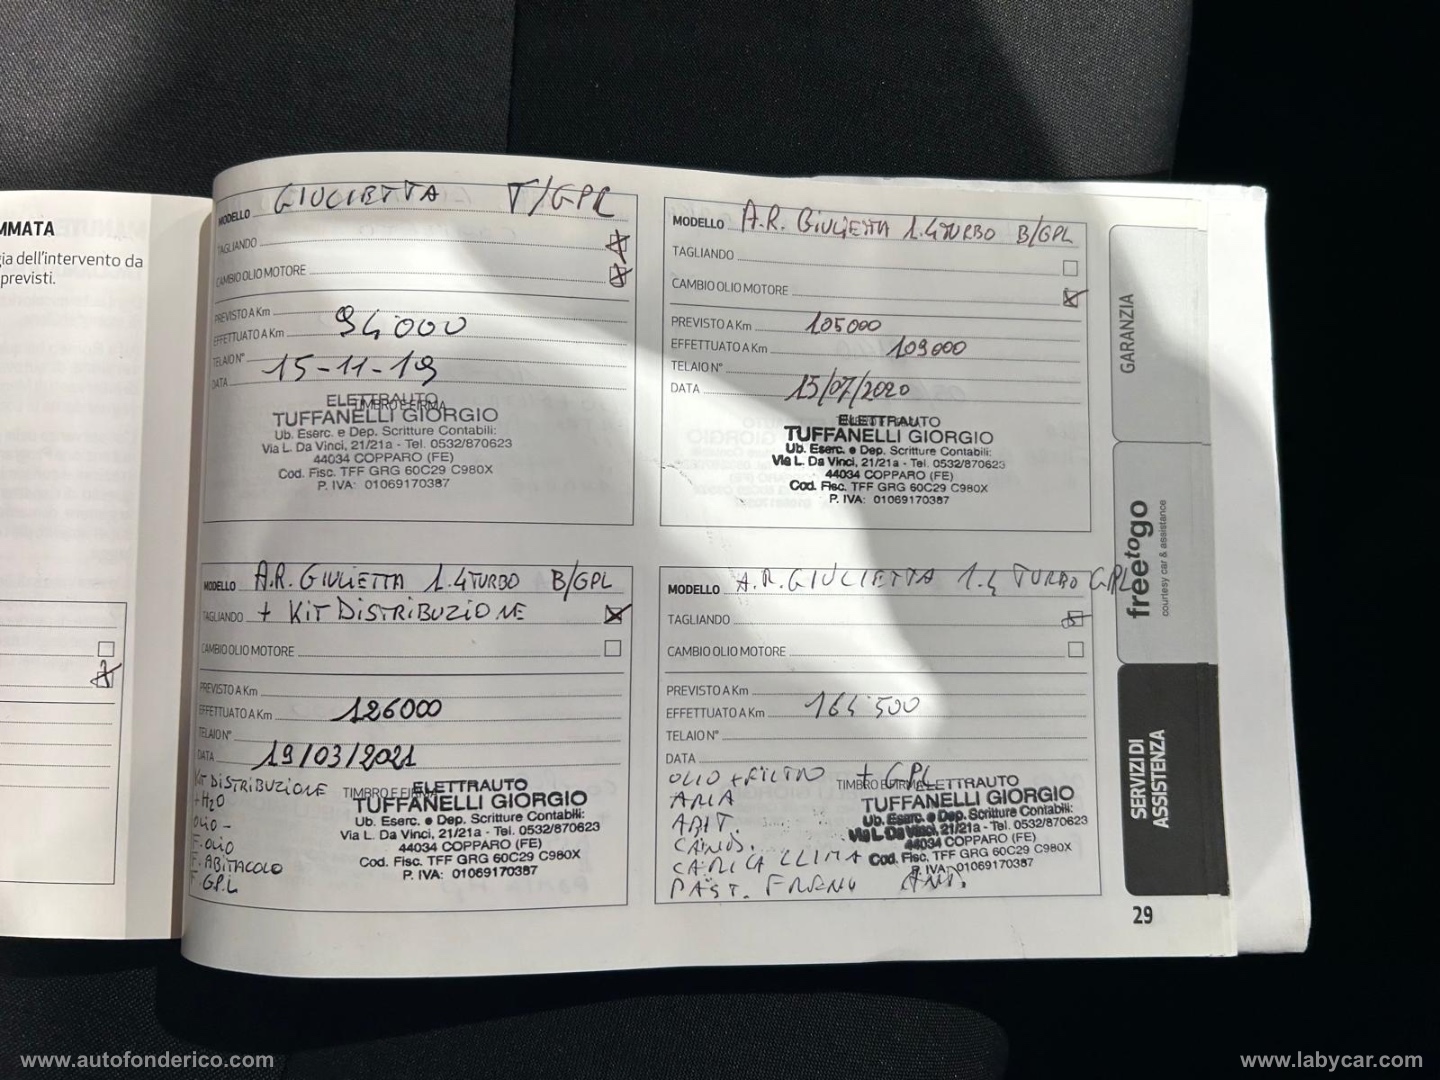 MMATA
gia dell'intervento da
previsti.
MODELLO GIULIETTA T/GPL
TAGLIANDO
CAMBIO OLIO MOTORE
PREVISTO A Km
EFFETTUATO A Km 94000
TELAIO N°
DATA 15-11-19
ELETTRAUTO
TIMBRO E FIRMA
TUFFANELLI GIORGIO
Ub. Eserc. e Dep. Scritture Contabili:
Via L. Da Vinci, 21/21a - Tel. 0532/870623
44034 COPPARO (FE)
Cod. Fisc. TFF GRG 60C29 C980X
P. IVA: 01069170387
MODELLO A.R. GIULIETTA 1.4 TURBO B/GPL
TAGLIANDO
CAMBIO OLIO MOTORE
PREVISTO A Km 105000
EFFETTUATO A Km 109000
TELAIO N°
DATA 15/07/2020
ELETTRAUTO
TUFFANELLI GIORGIO
Ub. Eserc. e Dep. Scritture Contabili:
Via L. Da Vinci, 21/21a - Tel. 0532/870623
44034 COPPARO (FE)
Cod. Fisc. TFF GRG 60C29 C980X
P. IVA: 01069170387
MODELLO A.R. GIULIETTA 1.4 TURBO B/GPL
TAGLIANDO + KIT DISTRIBUZIONE
CAMBIO OLIO MOTORE
PREVISTO A Km
EFFETTUATO A Km 126000
TELAIO N°
DATA 19/03/2021
KIT DISTRIBUZIONE
+ H2O
OLIO -
F. OLIO
F. ABITACOLO
F. GPL
TIMBRO E FIRMA
ELETTRAUTO
TUFFANELLI GIORGIO
Ub. Eserc. e Dep. Scritture Contabili:
Via L. Da Vinci, 21/21a - Tel. 0532/870623
44034 COPPARO (FE)
Cod. Fisc. TFF GRG 60C29 C980X
P. IVA: 01069170387
MODELLO A.R. GIULIETTA 1.4 TURBO GPL
TAGLIANDO
CAMBIO OLIO MOTORE
PREVISTO A Km
EFFETTUATO A Km 164500
TELAIO N°
DATA
OLIO + FILTRO + GPL
ARIA
ABIT.
CAND.
CARICA CLIMA
PAST. FRENO ANT.
TIMBRO E FIRMA
ELETTRAUTO
TUFFANELLI GIORGIO
Ub. Eserc. e Dep. Scritture Contabili:
Via L. Da Vinci, 21/21a - Tel. 0532/870623
44034 COPPARO (FE)
Cod. Fisc. TFF GRG 60C29 C980X
P. IVA: 01069170387
GARANZIA
freetogo
courtesy car & assistance
SERVIZI DI
ASSISTENZA
29
www.autofonderico.com
www.labycar.com